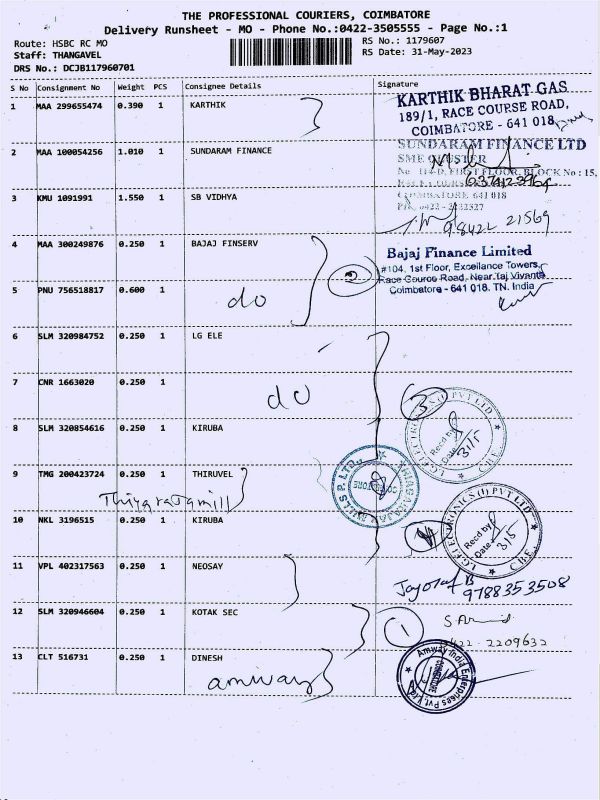 THE PROFESSIONAL COURIERS, COIMBATORE
Delivery Runsheet - MO - Phone No.:0422-3505555 - Page No.:1
Route: HSBC RC MO
Staff: THANGAVEL
DRS No.: DCJB117960701
RS No.: 1179607
RS Date: 31-May-2023
S No Consignment No Weight PCS Consignee Details Signature
1 MAA 299655474 0.390 1 KARTHIK
KARTHIK BHARAT GAS
189/1, RACE COURSE ROAD,
COIMBATORE - 641 018
2 MAA 100054256 1.010 1 SUNDARAM FINANCE
SUNDARAM FINANCE LTD
SME CLUSTER
No : 114-D, FIRST FLOOR, BLOCK No : 15,
COIMBATORE 641 018
3 KMU 1091991 1.550 1 SB VIDHYA
98422 21569
4 MAA 300249876 0.250 1 BAJAJ FINSERV
2
Bajaj Finance Limited
#104, 1st Floor, Excellance Towers,
Race Cource Road, Near Taj Vivanta
Coimbatore - 641 018. TN. India
5 PNU 756518817 0.600 1
do
6 SLM 320984752 0.250 1 LG ELE
7 CNR 1663020 0.250 1
do
3
LG ELECTRONICS (I) PVT LTD
Recd by
Date 31/5
CBE
8 SLM 320854616 0.250 1 KIRUBA
9 TMG 200423724 0.250 1 THIRUVEL
Thiyagaraja mill
THIAGARAJAR MILLS P. LTD.,
10 NKL 3196515 0.250 1 KIRUBA
4
LG ELECTRONICS (I) PVT LTD
Recd by
Date 31/5
CBE
11 VPL 402317563 0.250 1 NEOSAY
9788353508
12 SLM 320946604 0.250 1 KOTAK SEC
1
0422-2209632
13 CLT 516731 0.250 1 DINESH
amway
Amway India Enterprises Pvt. Ltd
COIMBATORE